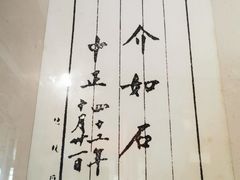 介如石
中正 四十五年
十月卅一日